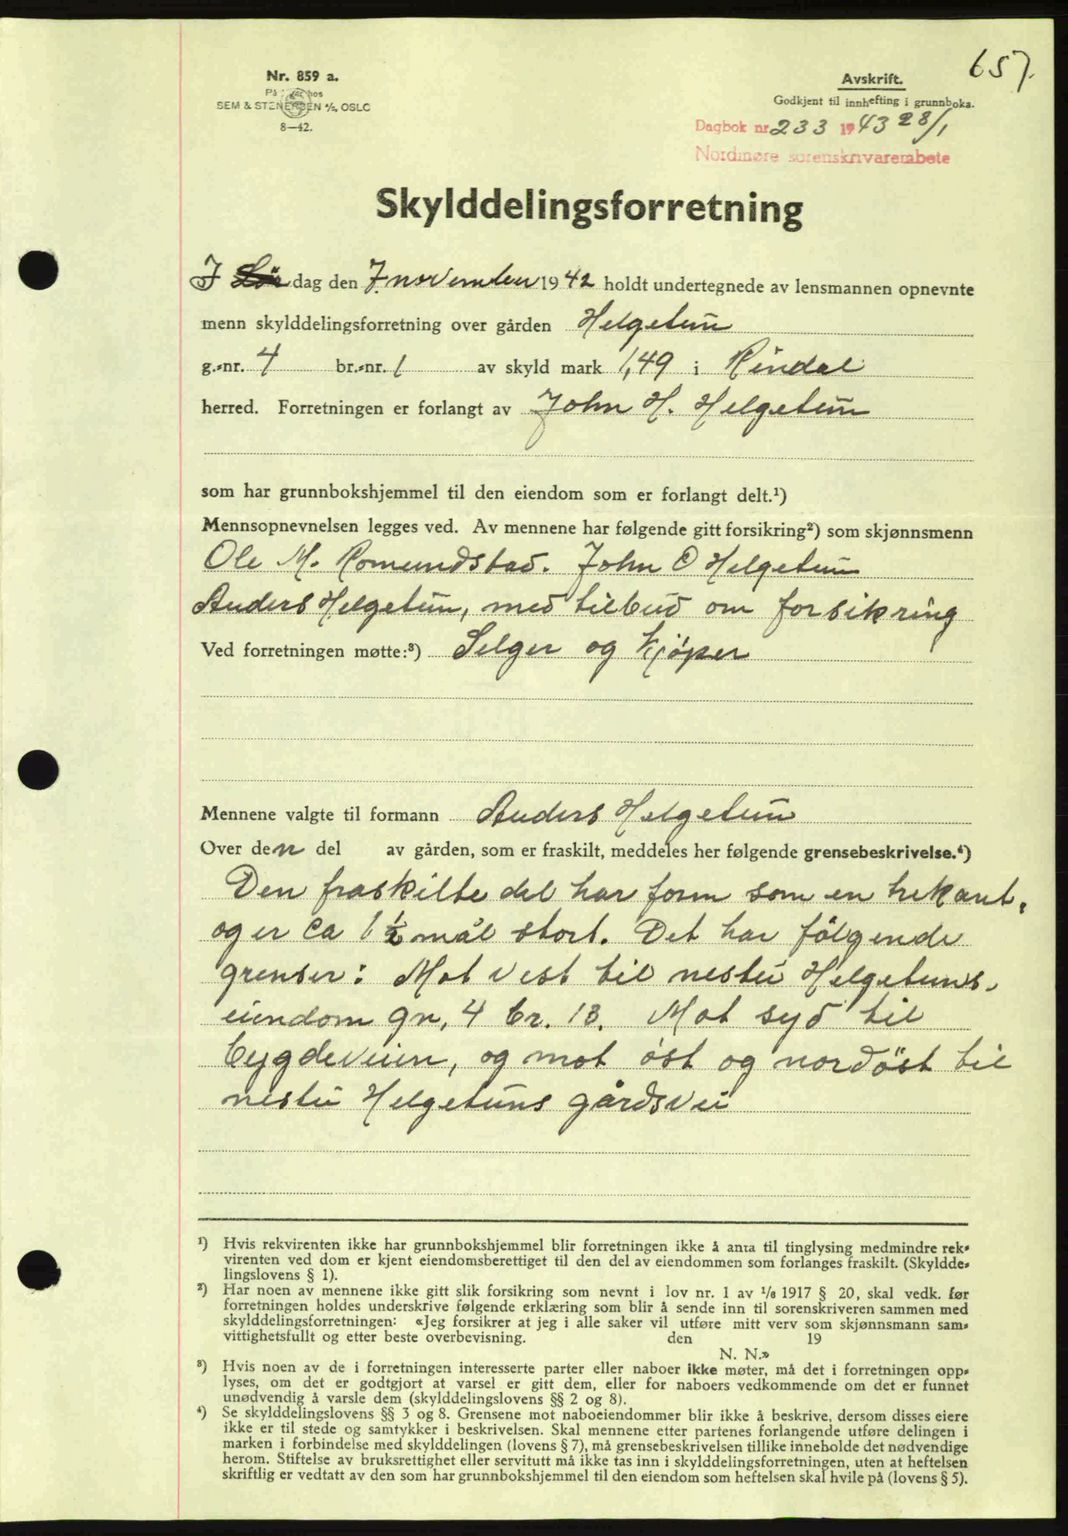 657.
Nr. 859 a.
På lager hos
SEM & STENERSEN A/S, OSLO
8—42.
Avskrift.
Godkjent til innhefting i grunnboka.
Dagbok nr 233 1943 28/1
Nordmøre sorenskrivarembete
Skylddelingsforretning
I Lør dag den 7 november 1942 holdt undertegnede av lensmannen opnevnte
menn skylddelingsforretning over gården Helgetun
g.-nr. 4 br.-nr. 1 av skyld mark 1,49 i Rindal
herred. Forretningen er forlangt av John H. Helgetun
som har grunnbokshjemmel til den eiendom som er forlangt delt.¹)
Mennsopnevnelsen legges ved. Av mennene har følgende gitt forsikring²) som skjønnsmenn
Ole M. Romundstad. John O Helgetun
Anders Helgetun, med tilbud om forsikring
Ved forretningen møtte:³) Selger og kjøper
Mennene valgte til formann Anders Helgetun
Over den del av gården, som er fraskilt, meddeles her følgende grensebeskrivelse.⁴)
Den fraskilte del har form som en trekant,
og er ca 1 ½ mål stort. Det har følgende
grenser: Mot vest til nestu Helgetuns,
eiendom gn, 4 br. 13. Mot syd til
bygdeveien, og mot øst og nordøst til
nestu Helgetuns gårdsvei
¹) Hvis rekvirenten ikke har grunnbokshjemmel blir forretningen ikke å anta til tinglysing medmindre rek-
virenten ved dom er kjent eiendomsberettiget til den del av eiendommen som forlanges fraskilt. (Skyldde-
lingslovens § 1).
²) Har noen av mennene ikke gitt slik forsikring som nevnt i lov nr. 1 av 1/8 1917 § 20, skal vedk. før
forretningen holdes underskrive følgende erklæring som blir å sende inn til sorenskriveren sammen med
skylddelingsforretningen: «Jeg forsikrer at jeg i alle saker vil utføre mitt verv som skjønnsmann sam-
vittighetsfullt og etter beste overbevisning. den 19
N. N.»
³) Hvis noen av de i forretningen interesserte parter eller naboer ikke møter, må det i forretningen opp-
lyses, om det er godtgjort at varsel er gitt dem, eller for naboers vedkommende om det er funnet
unødvendig å varsle dem (skylddelingslovens §§ 2 og 8).
⁴) Se skylddelingslovens §§ 3 og 8. Grensene mot naboeiendommer blir ikke å beskrive, dersom disses eiere
ikke er til stede og samtykker i beskrivelsen. Skal mennene etter partenes forlangende utføre delingen i
marken i forbindelse med skylddelingen (lovens § 7), må grensebeskrivelsen tillike inneholde det nødvendige
herom. Stiftelse av bruksrettighet eller servitutt må ikke tas inn i skylddelingsforretningen, uten at heftelsen
skriftlig er vedtatt av den som har grunnbokshjemmel til den eiendom som heftelsen skal hvile på (lovens § 5).